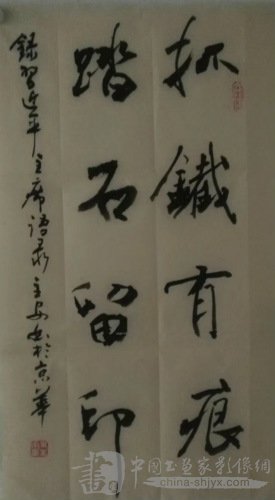 抓鐵有痕
踏石留印
錄習近平主席語录主安书於京華
中国书画家影像网
www.china-shjyx.com